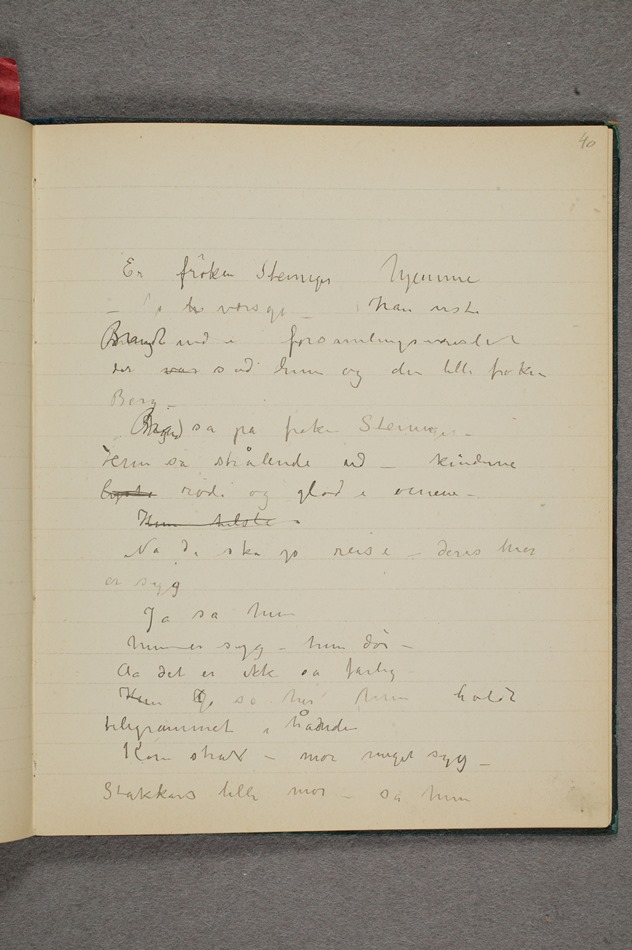 40
Er fröken Steninger hjemme
– Ja værsgo – Han viste
Brandt ind i forsamlingsværelset
der var sad hun og den lille frøken
Berg –
Brandt så på frøken Steninger –
Hun så strålende ud – kinderne
lyste røde og glød i øinene –
Hun hilste –
Nå De ska jo reise – deres mor
er syg
Ja sa hun
hun er syg – hun dør –
Aa det er ikke så farlig
Hun Jo sa hun hun holdt
telegrammet i hånden
Kom straks – mor meget syg –
Stakkars lille mor – sa hun